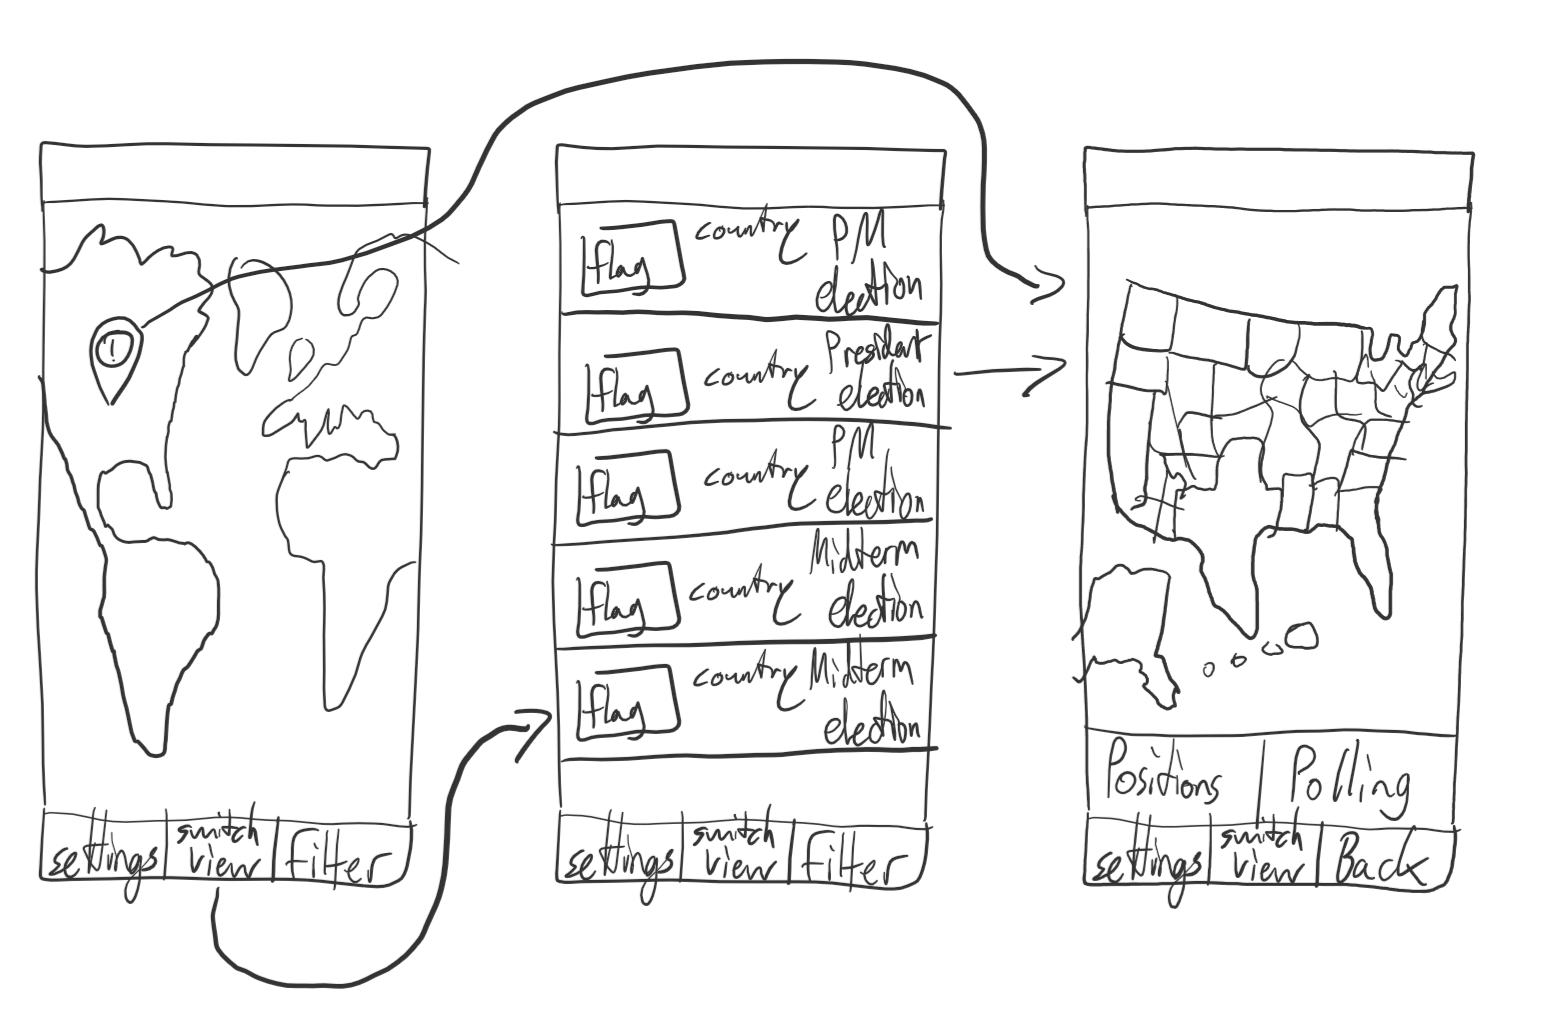 !
settings
switch
view
filter
flag
country
PM
election
flag
country
President
election
flag
country
PM
election
flag
country
Midterm
election
flag
country
Midterm
election
settings
switch
view
filter
Positions
Polling
settings
switch
view
Back